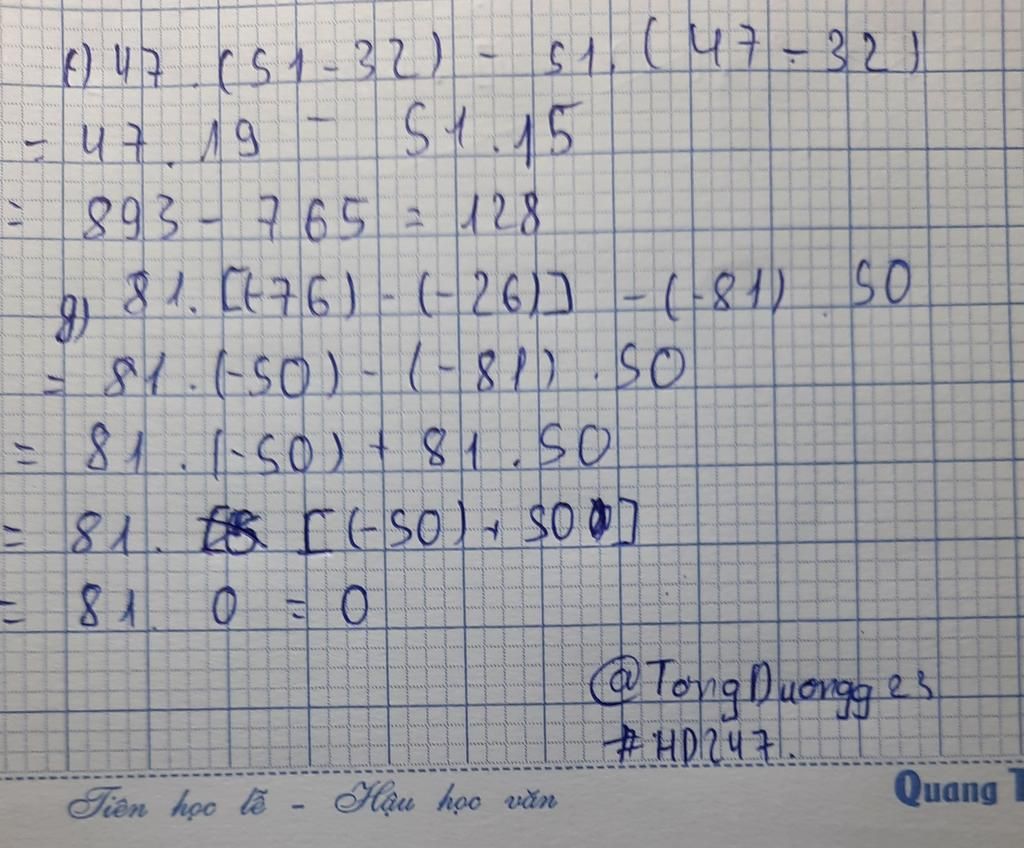 f) 47 . (51 - 32) - 51 . (47 - 32)
= 47 . 19 - 51 . 15
= 893 - 765 = 128
g) 81 . [(-76) - (-26)] - (-81) . 50
= 81 . (-50) - (-81) . 50
= 81 . (-50) + 81 . 50
= 81 . [(-50) + 50]
= 81 . 0 = 0
@TongDuongg23
#HD247.
Tiên học lễ - Hậu học văn
Quang T